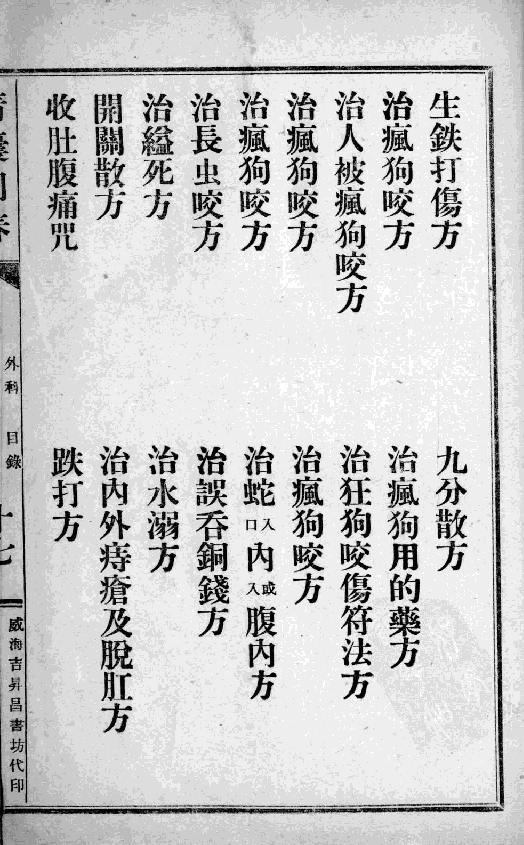 生鉄打傷方
九分散方
治瘋狗咬方
治瘋狗用的藥方
治人被瘋狗咬方
治狂狗咬傷符法方
治瘋狗咬方
治瘋狗咬方
治瘋狗咬方
治蛇入口內或入腹內方
治長虫咬方
治誤吞銅錢方
治縊死方
治水溺方
開關散方
治內外痔瘡及脫肛方
收肚腹痛咒
跌打方
外科 目錄
威海吉昇昌書坊代印